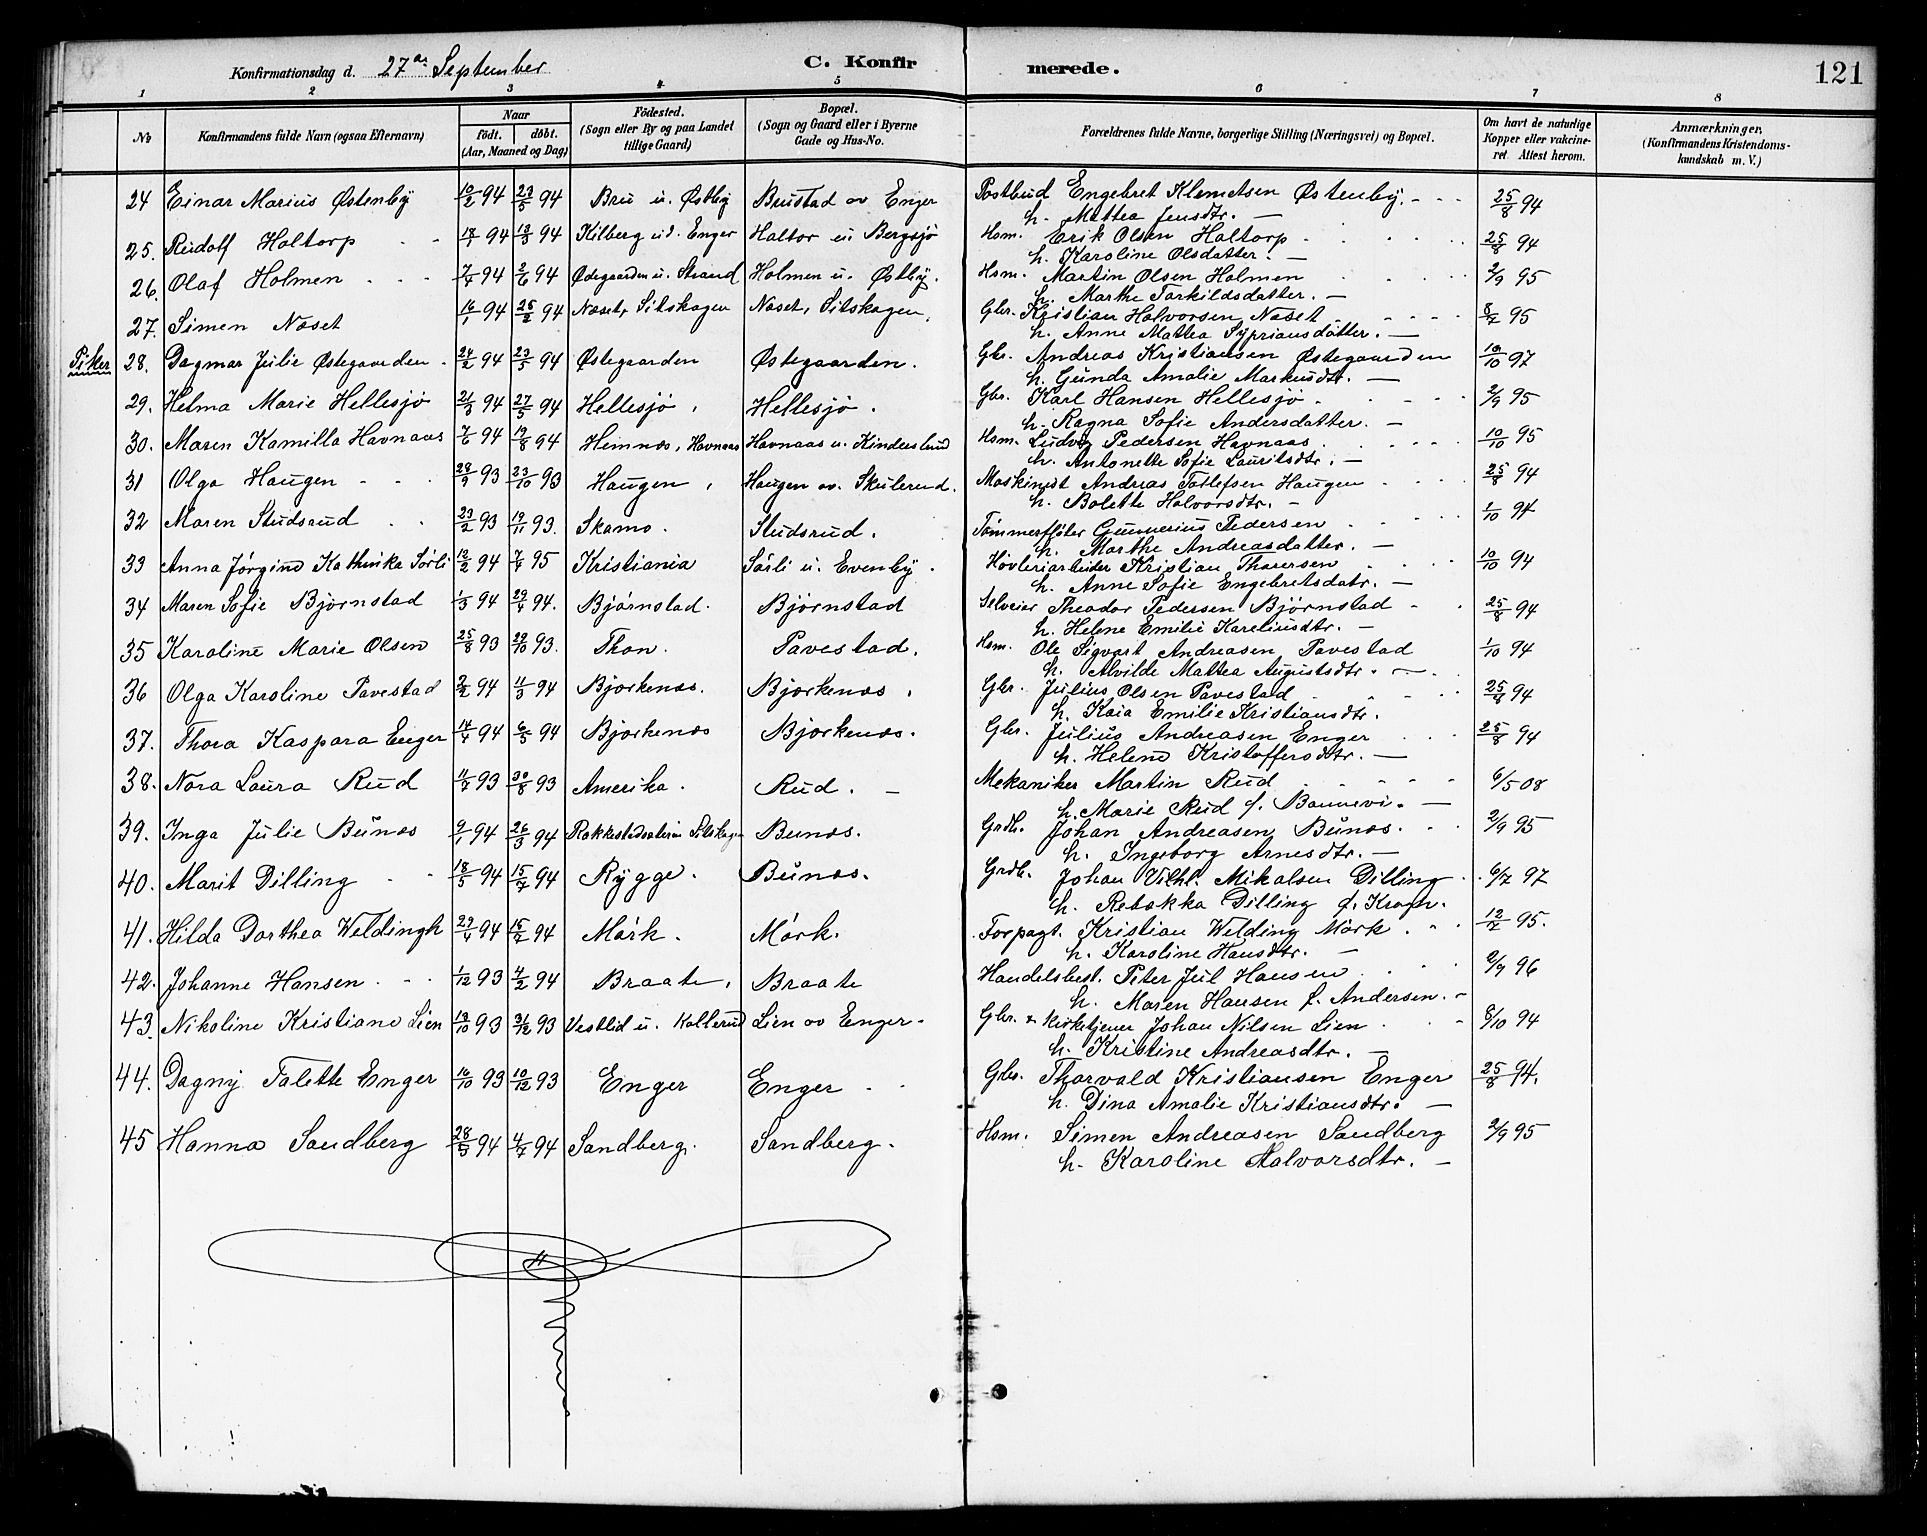 Konfirmationsdag d. 27de September C. Konfirmerede. 121
1 2 3 4 5 6 7 8
No Konfirmandens fulde Navn (ogsaa Efternavn) Naar födt. döbt. (Aar, Maaned og Dag) Födested. (Sogn eller By og paa Landet tillige Gaard) Bopæl. (Sogn og Gaard eller i Byerne Gade og Hus-No. Forældrenes fulde Navne, borgerlige Stilling (Næringsvei) og Bopæl. Om havt de naturlige Kopper eller vakcineret. Attest herom. Anmærkninger, (Konfirmandens Kristendomskundskab m. V.)
24 Einar Marius Østenby 10/2 94 23/5 94 Bru u. Østby Brustad ov Enger Postbud Engebret Klemetsen Østenby. 25/8 94
h. Mathea Jensdtr. —
25. Rudolf Holtorp 18/1 94 13/5 94 Kilberg ud. Enger Haltor u Bergsjø Hsm. Erik Olsen Holtorp 25/8 94
h. Karoline Olsdatter. —
26. Olaf Holmen 7/4 94 2/6 94 Ødegaarden u. Strand Holmen u. Østby. Hsm. Martin Olsen Holmen 2/9 95
h. Marthe Torkildsdatter. —
27. Simen Næset 16/1 94 25/2 94 Næset, Sitskogen Næset, Sitskogen. Gbr. Kristian Halvorsen Næset 8/7 95
h. Anne Mathea Sypriansdatter. —
Piker 28. Dagmar Julie Østegaarden 24/2 94 23/5 94 Østegaarden Østegaarden. Gbr. Andreas Kristiansen Østegaarden 10/10 97
h. Gunda Amalie Markusdtr. —
29. Helma Marie Hellesjö 21/3 94 27/5 94 Hellesjö, Hellesjö. Gbr. Karl Hansen Hellesjö 2/9 95
h. Ragna Sofie Andersdatter. —
30. Maren Kamilla Havnaas 7/6 94 19/8 94 Hemnæs, Havnaas Havnaas u. Kinderslund Hsm. Ludvig Pedersen Havnaas 10/10 95
h. Antonette Sofie Lauritsdtr. —
31 Olga Haugen 28/9 93 23/10 93 Haugen, Haugen ov. Skulerud. Maskinist Andreas Tollefsen Haugen 25/8 94
h. Bolette Halvorsdtr. —
32 Maren Studsrud 23/2 93 19/11 93. Skamo. Studsrud. Tömmerfløter Gunnerius Pedersen 1/10 94
h. Marthe Andreasdatter. —
33 Anna Jörgine Kathinka Sørli 12/2 94 7/4 95 Kristiania Sörli u. Evenby. Høvleriarbeider Kristian Thoresen 10/10 94
h. Anne Sofie Engebretsdatr. —
34 Maren Sofie Bjørnstad 1/3 94 29/4 94. Bjørnstad. Bjørnstad Selveier Theodor Pedersen Bjørnstad 25/8 94
h. Helene Emilie Kareliusdtr. —
35 Karoline Marie Olsen 25/8 93 29/10 93. Thon. Pavestad. Hsm. Ole Sigvart Andreasen Pavestad 1/10 94
h. Alvilde Mathea Augustsdtr. —
36 Olga Karoline Pavestad 2/2 94 11/3 94 Bjørkenæs. Bjørkenæs. Gbr. Julius Olsen Pavestad 25/8 94
h. Kaia Emilie Kristiansdtr.
37. Thora Kaspara Enger 14/4 94 6/5 94 Bjørkenæs Bjørkenæs. Gbr. Julius Andreasen Enger 25/8 94
h. Helene Kristoffersdtr. —
38. Nora Laura Rud 11/7 93 30/8 93 Amerika. Rud. — Mekaniker Martin Rud 6/5 08
h. Marie Rud f. Bonnevi. —
39. Inga Julie Bunæs 9/1 94 26/3 94 Rakkestadsæteren Sitskogen Bunæs. Grdb. Johan Andreasen Bunæs. 2/9 95
h. Ingeborg Arnesdtr. —
40. Marit Dilling 18/5 94 15/7 94 Rygge. Bunæs. Grdb. Johan Vilhl. Mikalsen Dilling 6/7 97
h. Rebekka Dilling f. Krogh.
41. Hilda Dorthea Weldingh 29/4 94 15/7 94 Mörk. Mörk. Forpagt. Kristian Welding Mörk 12/7 95.
h. Karoline Hansdtr. —
42. Johanne Hansen 1/12 93 4/2 94 Braate, Braate Handelsbest. Peter Jul Hansen 2/9 96
h. Maren Hansen f. Andersen. —
43. Nikoline Kristiane Lien 13/10 93 31/12 93 Vestlid u. Kollerud Lien ov Enger. Gbr. & Kirketjener Johan Nilsen Lien 8/10 94
h. Kristine Andreasdtr. —
44. Dagny Talette Enger 16/10 93 10/12 93 Enger Enger Gbr. Thorvald Kristiansen Enger 25/8 94.
h. Dina Amalie Kristiansdtr. —
45 Hanna Sandberg 28/5 94 4/7 94 Sandberg. Sandberg. Hsm. Simen Andreasen Sandberg 2/9 95
h. Karoline Halvorsdtr. —